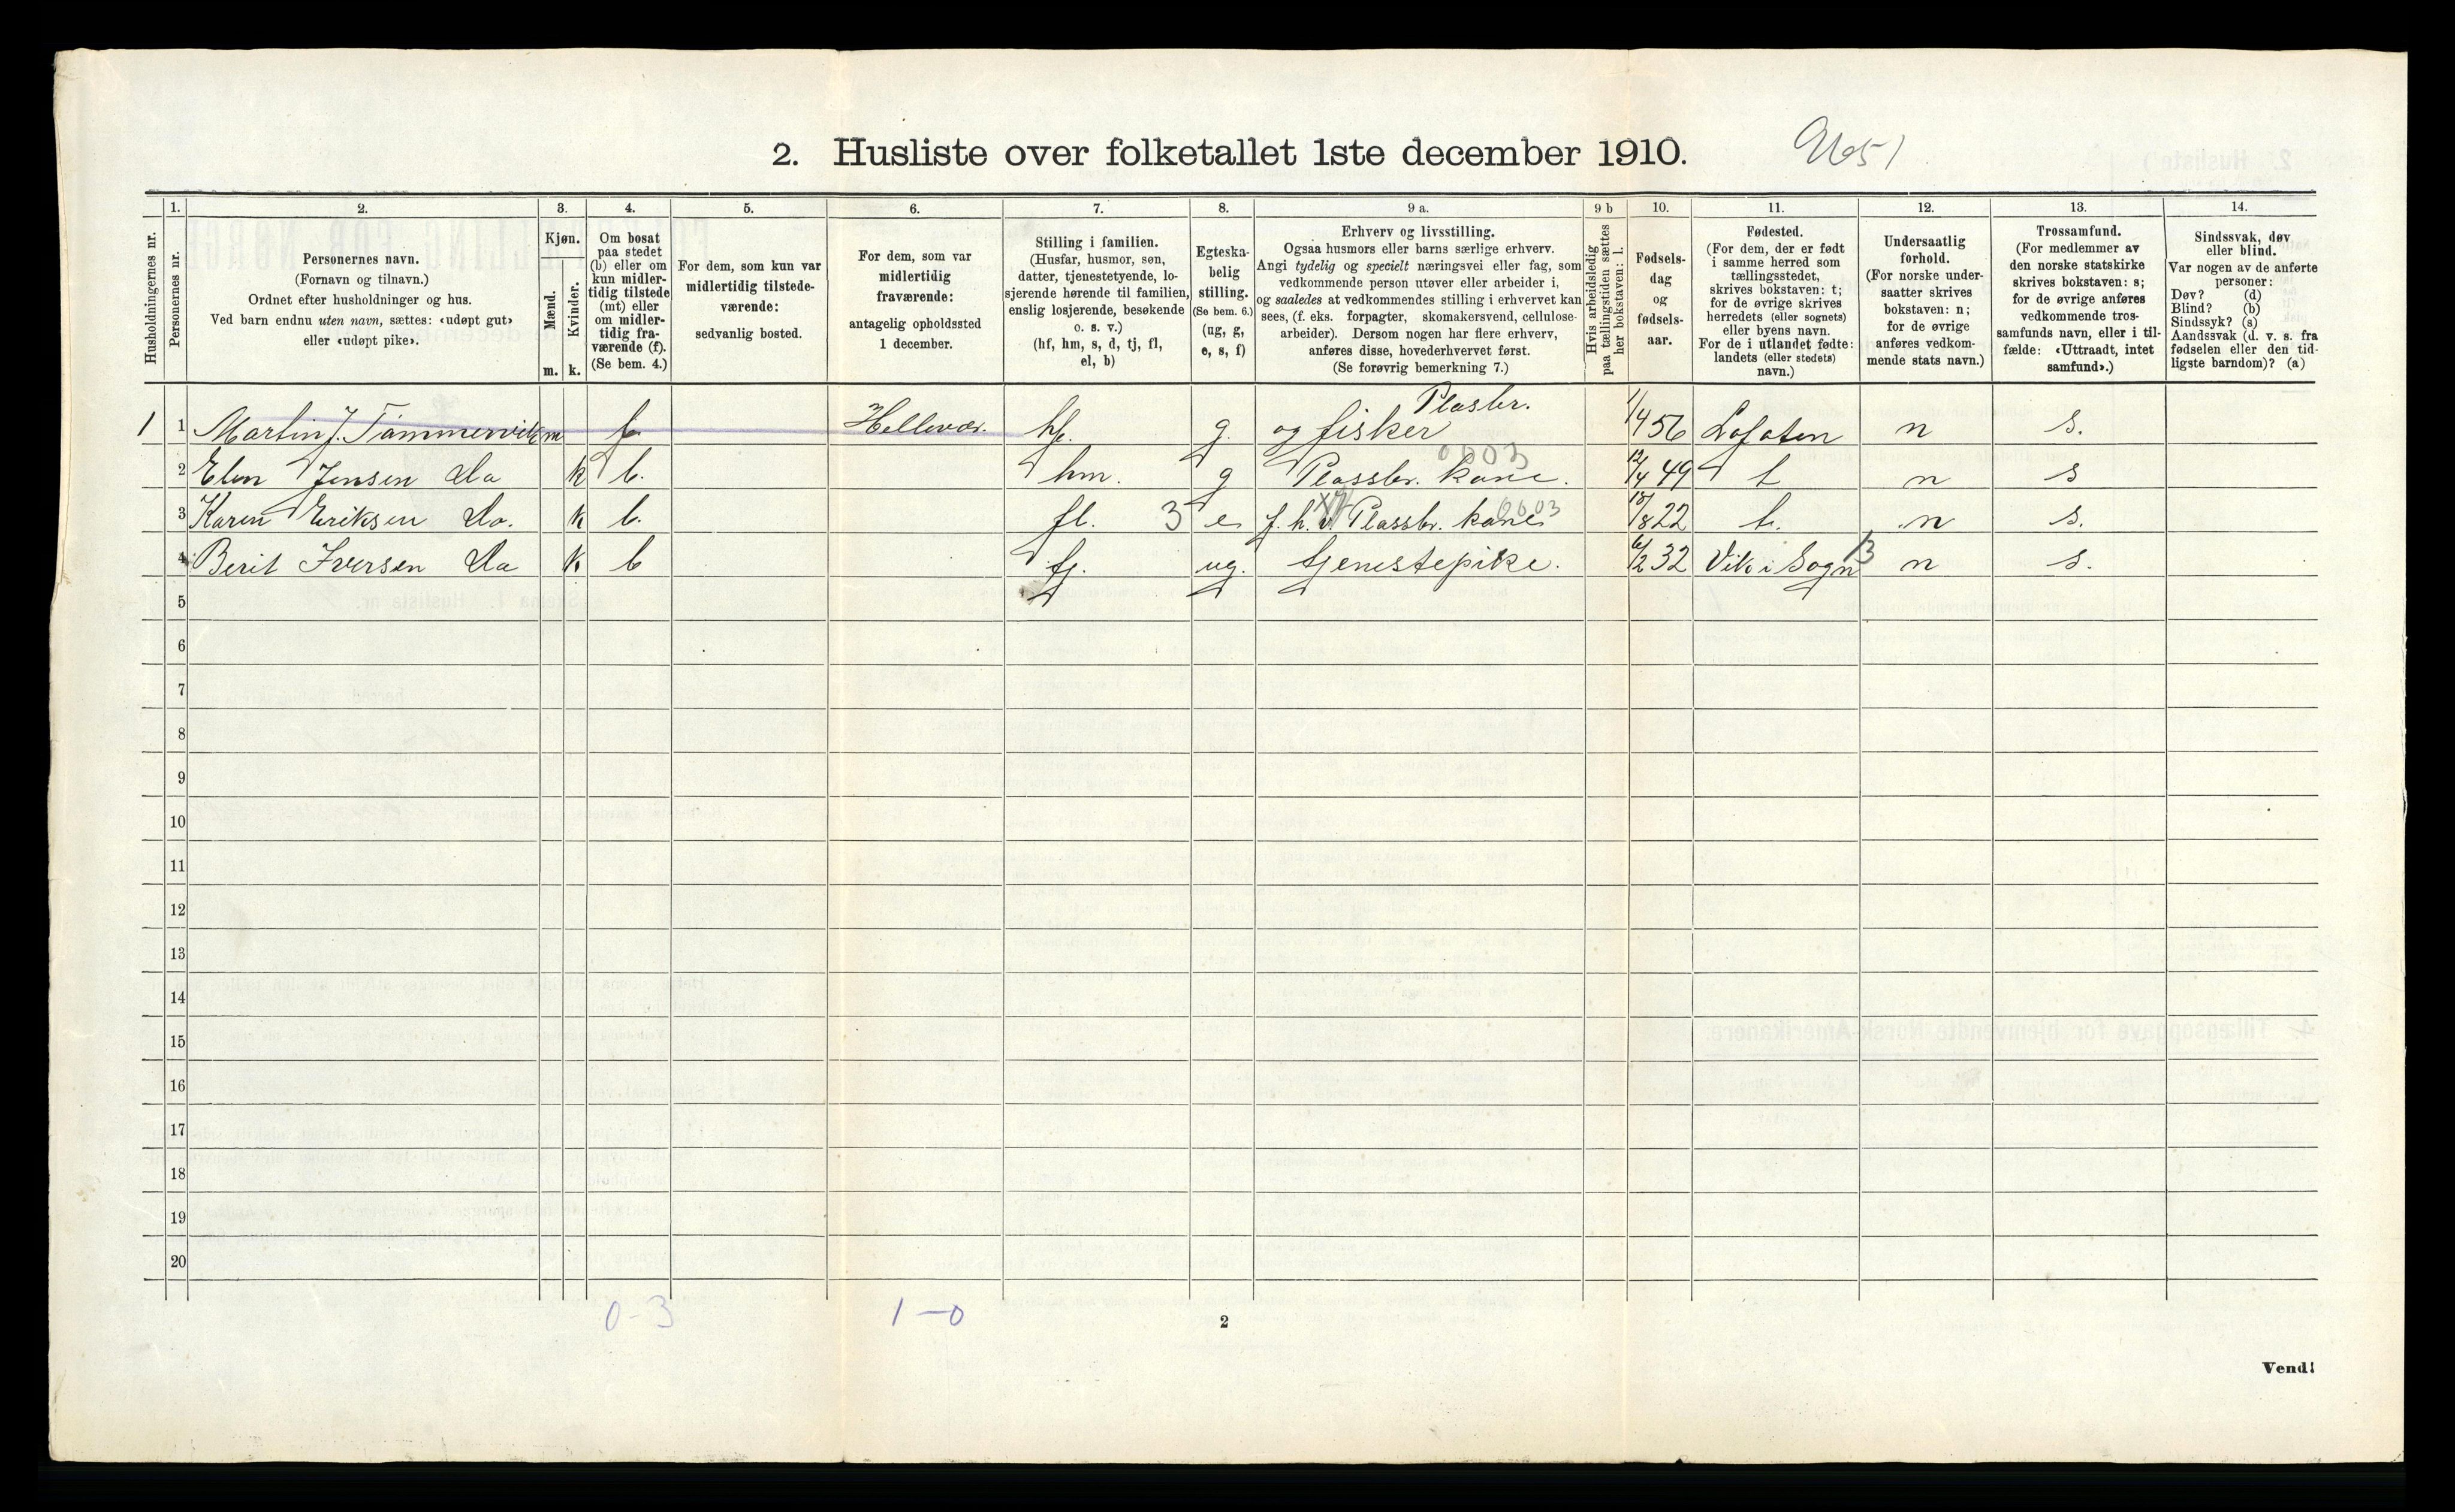 2. Husliste over folketallet 1ste december 1910.
1. 2. 3. 4. 5. 6. 7. 8. 9 a. 9 b 10. 11. 12. 13. 14.
Husholdningernes nr.
Personernes nr.
Personernes navn.
(Fornavn og tilnavn.)
Ordnet efter husholdninger og hus.
Ved barn endnu uten navn, sættes: «udøpt gut»
eller «udøpt pike».
Kjøn.
Mænd.
Kvinder.
m. k.
Om bosat
paa stedet
(b) eller om
kun midler-
tidig tilstede
(mt) eller
om midler-
tidig fra-
værende (f).
(Se bem. 4.)
For dem, som kun var
midlertidig tilstede-
værende:
sedvanlig bosted.
For dem, som var
midlertidig
fraværende:
antagelig opholdssted
1 december.
Stilling i familien.
(Husfar, husmor, søn,
datter, tjenestetyende, lo-
sjerende hørende til familien,
enslig losjerende, besøkende
o. s. v.)
(hf, hm, s, d, tj, fl,
el, b)
Egteska-
belig
stilling.
(Se bem. 6.)
(ug, g,
e, s, f)
Erhverv og livsstilling.
Ogsaa husmors eller barns særlige erhverv.
Angi tydelig og specielt næringsvei eller fag, som
vedkommende person utøver eller arbeider i,
og saaledes at vedkommendes stilling i erhvervet kan
sees, (f. eks. forpagter, skomakersvend, cellulose-
arbeider). Dersom nogen har flere erhverv,
anføres disse, hovederhvervet først.
(Se forøvrig bemerkning 7.)
Hvis arbeidsledig
paa tællingstiden sættes
her bokstaven: l.
Fødsels-
dag
og
fødsels-
aar.
Fødested.
(For dem, der er født
i samme herred som
tællingsstedet,
skrives bokstaven: t;
for de øvrige skrives
herredets (eller sognets)
eller byens navn.
For de i utlandet fødte:
landets (eller stedets)
navn.)
Undersaatlig
forhold.
(For norske under-
saatter skrives
bokstaven: n;
for de øvrige
anføres vedkom-
mende stats navn.)
Trossamfund.
(For medlemmer av
den norske statskirke
skrives bokstaven: s;
for de øvrige anføres
vedkommende tros-
samfunds navn, eller i til-
fælde: «Uttraadt, intet
samfund».)
Sindssvak, døv
eller blind.
Var nogen av de anførte
personer:
Døv? (d)
Blind? (b)
Sindssyk? (s)
Aandssvak (d. v. s. fra
fødselen eller den tid-
ligste barndom)? (a)
Plasbr.
1 1 Martin J. Tömmervik m f. Hellevær. hf. g. og fisker 1/4 56 Lofoten n s.
0003
2 Elen Jensen Do k b. hm. g Plassbr. kone. 12/4 49 t n s
0003
3 Karen Eriksen Do. k b. fl. 3 e f. h. v. Plassbr. kone 18/8 22 t. n s.
4 Berit Iversen Do k. b tj. ug. tjenestepike. 6/2 32 Vik i Sogn 13 n s.
5
6
7
8
9
10
11
12
13
14
15
16
17
18
19
20
0-3 1-0
2
Vend!